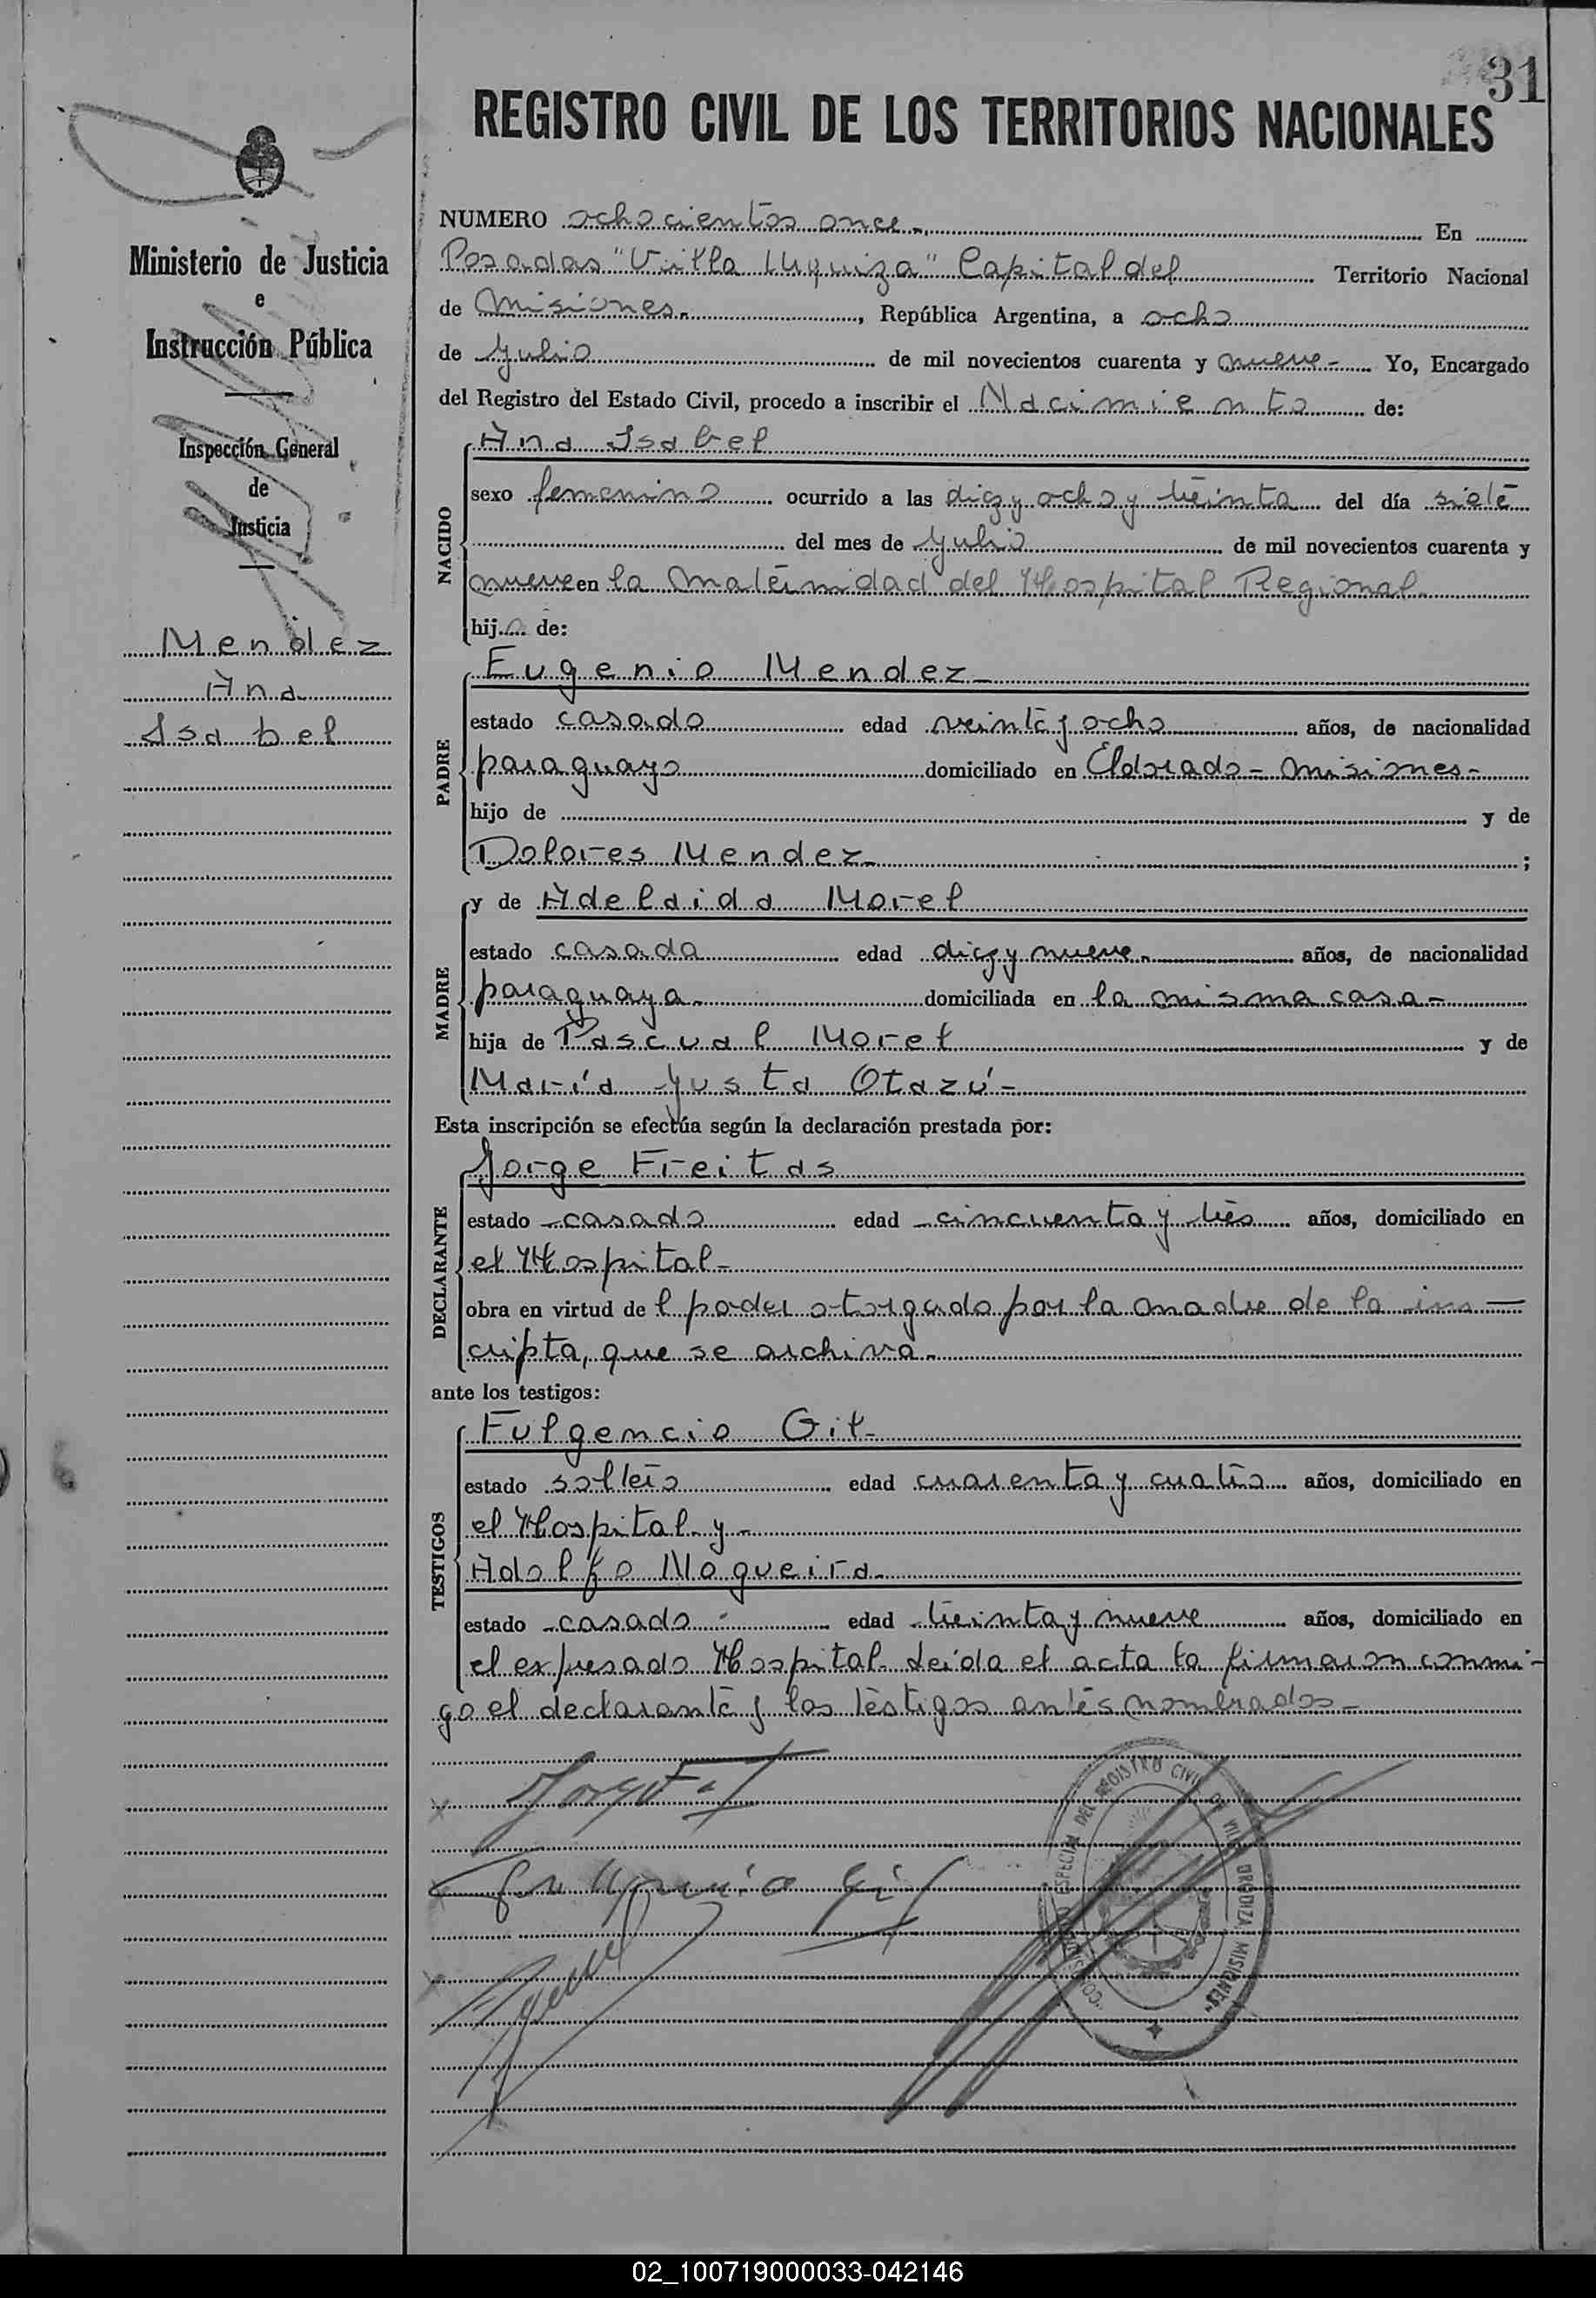 31
REGISTRO CIVIL DE LOS TERRITORIOS NACIONALES
Ministerio de Justicia
e
Instrucción Pública
Inspección General
de
Justicia
Mendez
Ana
Isabel
NUMERO ochocientos once.- En
Posadas "Villa Urquiza" Capital del Territorio Nacional
de Misiones.-, República Argentina, a ocho
de Julio de mil novecientos cuarenta y nueve- Yo, Encargado
del Registro del Estado Civil, procedo a inscribir el Nacimiento de:
NACIDO
Ana Isabel
sexo femenino ocurrido a las diez y ocho y treinta del día siete
del mes de Julio de mil novecientos cuarenta y
nueve en la Maternidad del Hospital Regional.
hija de:
PADRE
Eugenio Mendez-
estado casado edad veinte y ocho años, de nacionalidad
paraguayo domiciliado en Eldorado- Misiones-
hijo de y de
Dolores Mendez- ;
MADRE
y de Adelaida Morel
estado casada edad diez y nueve.- años, de nacionalidad
paraguaya.- domiciliada en la misma casa-
hija de Pascual Morel y de
María Justa Otazú-
Esta inscripción se efectúa según la declaración prestada por:
DECLARANTE
Jorge Freitas
estado casado edad cincuenta y tres años, domiciliado en
el Hospital-
obra en virtud de l poder otorgado por la madre de la ins-
cripta, que se archiva.-
ante los testigos:
TESTIGOS
Fulgencio Gil-
estado soltero edad cuarenta y cuatro años, domiciliado en
el Hospital y-
Adolfo Nogueira.
estado casado- edad treinta y nueve años, domiciliado en
el expresado Hospital. Leída el acta la firmaron conmi-
go el declarante y los testigos antes nombrados-
Fulgencio Gil
COMISIÓN ESPECIAL DEL REGISTRO CIVIL DE VILLA URQUIZA MISIONES
02_100719000033-042146